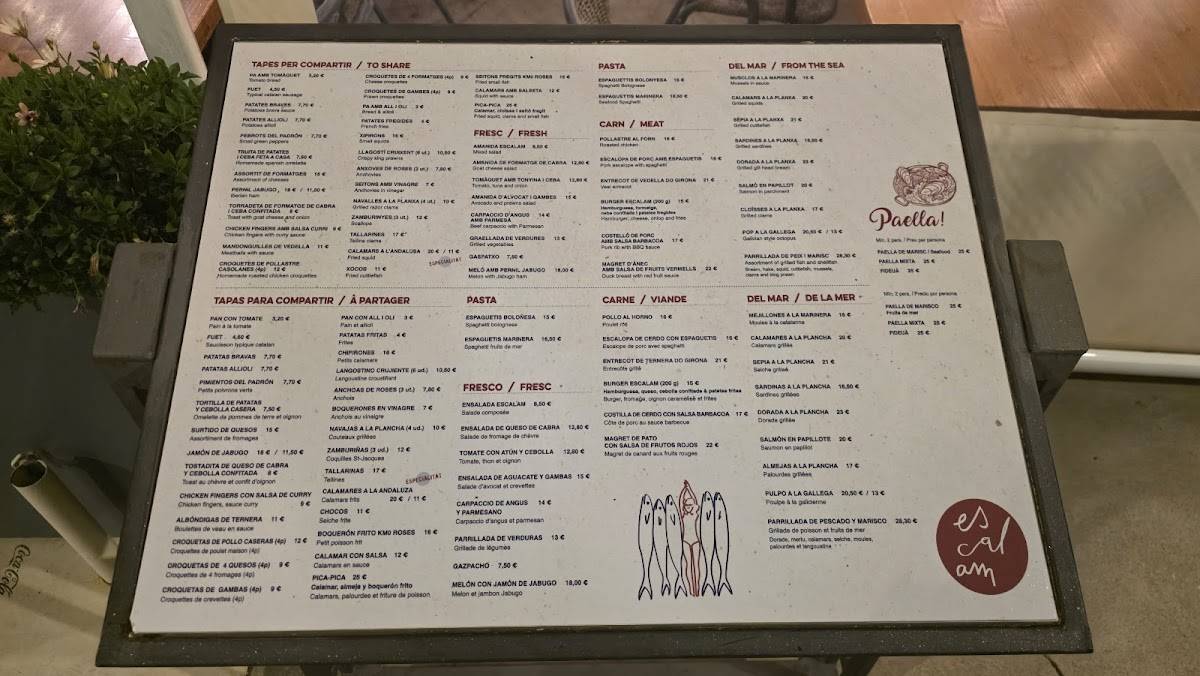 TAPES PER COMPARTIR / TO SHARE
PA AMB TOMÀQUET 3,20 €
Tomato bread
FUET 4,50 €
Typical catalan sausage
PATATES BRAVES 7,70 €
Potatoes brava sauce
PATATES ALLIOLI 7,70 €
Potatoes allioli
PEBROTS DEL PADRÓN 7,70 €
Small green peppers
TRUITA DE PATATES
I CEBA FETA A CASA 7,50 €
Homemade spanish omelette
ASSORTIT DE FORMATGES 15 €
Assortment of cheeses
PERNIL JABUGO 18 € / 11,50 €
Iberian ham
TORRADETA DE FORMATGE DE CABRA
I CEBA CONFITADA 8 €
Toast with goat cheese and onion
CHICKEN FINGERS AMB SALSA CURRY 9 €
Chicken fingers with curry sauce
MANDONGUILLES DE VEDELLA 11 €
Meatballs with sauce
CROQUETES DE POLLASTRE
CASOLANES (4p) 12 €
Homemade roasted chicken croquettes
CROQUETES DE 4 FORMATGES (4p) 9 €
Cheese croquettes
CROQUETES DE GAMBES (4p) 9 €
Prawn croquettes
PA AMB ALL I OLI 3 €
Bread & allioli
PATATES FREGIDES 4 €
French fries
XIPIRONS 16 €
Small squids
LLAGOSTÍ CRUIXENT (6 ut.) 10,50 €
Crispy king prawns
ANXOVES DE ROSES (3 ut.) 7,80 €
Anchovies
SEITONS AMB VINAGRE 7 €
Anchovies in vinegar
NAVALLES A LA PLANXA (4 ut.) 10 €
Grilled razor clams
ZAMBURINYES (3 ut.) 12 €
Scallops
TALLARINES 17 €
Tellina clams
CALAMARS A L'ANDALUSA 20 € / 11 €
Fried squid
ESPECIALITAT
XOCOS 11 €
Fried cuttlefish
SEITONS FREGITS KM0 ROSES 16 €
Fried small fish
CALAMARS AMB SALSETA 12 €
Squid with sauce
PICA-PICA 25 €
Calamar, cloïssa i seitó fregit
Fried squid, clams and small fish
FRESC / FRESH
AMANIDA ESCALAM 8,50 €
Mixed salad
AMANIDA DE FORMATGE DE CABRA 12,80 €
Goat cheese salad
TOMÀQUET AMB TONYINA I CEBA 12,80 €
Tomato, tuna and onion
AMANIDA D'ALVOCAT I GAMBES 15 €
Avocado and prawns salad
CARPACCIO D'ANGUS 14 €
AMB PARMESÀ
Beef carpaccio with Parmesan
GRAELLADA DE VERDURES 13 €
Grilled vegetables
GASPATXO 7,50 €
MELÓ AMB PERNIL JABUGO 18,00 €
Melon with Jabugo ham
PASTA
ESPAGUETTIS BOLONYESA 15 €
Spaghetti Bolognese
ESPAGUETTIS MARINERA 16,50 €
Seafood Spaghetti
CARN / MEAT
POLLASTRE AL FORN 16 €
Roasted chicken
ESCALOPA DE PORC AMB ESPAGUETTIS 16 €
Pork escalope with spaghetti
ENTRECOT DE VEDELLA DO GIRONA 21 €
Veal entrecot
BURGER ESCALAM (200 g) 15 €
Hamburguesa, formatge,
ceba confitada i patates fregides
Hamburger, cheese, onion and fries
COSTELLÓ DE PORC
AMB SALSA BARBACOA 17 €
Pork rib with BBQ Sauce
MAGRET D'ÀNEC
AMB SALSA DE FRUITS VERMELLS 22 €
Duck breast with red fruit sauce
DEL MAR / FROM THE SEA
MUSCLOS A LA MARINERA 15 €
Mussels in sauce
CALAMARS A LA PLANXA 20 €
Grilled squids
SÈPIA A LA PLANXA 21 €
Grilled cuttlefish
SARDINES A LA PLANXA 16,50 €
Grilled sardines
DORADA A LA PLANXA 23 €
Grilled gilt-head bream
SALMÓ EN PAPILLOT 20 €
Salmon in parchment
CLOÏSSES A LA PLANXA 17 €
Grilled clams
POP A LA GALLEGA 20,50 € / 13 €
Galician style octopus
PARRILLADA DE PEIX I MARISC 28,30 €
Assortment of grilled fish and shellfish
Bream, hake, squid, cuttlefish, mussels,
clams and king prawn
Paella!
Mín. 2 pers. / Preu per persona
PAELLA DE MARISC / Seafood 25 €
PAELLA MIXTA 25 €
FIDEUÀ 25 €
Mín. 2 pers. / Precio por persona
PAELLA DE MARISCO 25 €
Fruits de mer
PAELLA MIXTA 25 €
FIDEUÀ 25 €
TAPAS PARA COMPARTIR / À PARTAGER
PAN CON TOMATE 3,20 €
Pain à la tomate
FUET 4,50 €
Saucisson typique catalan
PATATAS BRAVAS 7,70 €
PATATAS ALLIOLI 7,70 €
PIMIENTOS DEL PADRÓN 7,70 €
Petits poivrons verts
TORTILLA DE PATATAS
Y CEBOLLA CASERA 7,50 €
Omelette de pommes de terre et oignon
SURTIDO DE QUESOS 15 €
Assortiment de fromages
JAMÓN DE JABUGO 18 € / 11,50 €
TOSTADITA DE QUESO DE CABRA
Y CEBOLLA CONFITADA 8 €
Toast au chèvre et confit d'oignon
CHICKEN FINGERS CON SALSA DE CURRY
Chicken fingers, sauce curry 9 €
ALBÓNDIGAS DE TERNERA 11 €
Boulettes de veau en sauce
CROQUETAS DE POLLO CASERAS (4p) 12 €
Croquettes de poulet maison (4p)
CROQUETAS DE 4 QUESOS (4p) 9 €
Croquettes de 4 fromages (4p)
CROQUETAS DE GAMBAS (4p) 9 €
Croquettes de crevettes (4p)
PAN CON ALL I OLI 3 €
Pain et allioli
PATATAS FRITAS 4 €
Frites
CHIPIRONES 16 €
Petits calamars
LANGOSTINO CRUJIENTE (6 ud.) 10,50 €
Langoustine croustillant
ANCHOAS DE ROSES (3 ut.) 7,80 €
Anchois
BOQUERONES EN VINAGRE 7 €
Anchois au vinaigre
NAVAJAS A LA PLANCHA (4 ud.) 10 €
Couteaux grillées
ZAMBURIÑAS (3 ud.) 12 €
Coquilles St-Jacques
TALLARINAS 17 €
Tellines
ESPECIALITAT
CALAMARES A LA ANDALUZA
Calamars frits 20 € / 11 €
CHOCOS 11 €
Seiche frite
BOQUERÓN FRITO KM0 ROSES 16 €
Petit poisson frit
CALAMAR CON SALSA 12 €
Calamars en sauce
PICA-PICA 25 €
Calamar, almeja y boquerón frito
Calamars, palourdes et friture de poisson
PASTA
ESPAGUETIS BOLOÑESA 15 €
Spaghetti bolognese
ESPAGUETIS MARINERA 16,50 €
Spaghetti fruits de mer
FRESCO / FRESC
ENSALADA ESCALAM 8,50 €
Salade composée
ENSALADA DE QUESO DE CABRA 12,80 €
Salade de fromage de chèvre
TOMATE CON ATÚN Y CEBOLLA 12,80 €
Tomate, thon et oignon
ENSALADA DE AGUACATE Y GAMBAS 15 €
Salade d'avocat et crevettes
CARPACCIO DE ANGUS 14 €
Y PARMESANO
Carpaccio d'angus et parmesan
PARRILLADA DE VERDURAS 13 €
Grillade de légumes
GAZPACHO 7,50 €
MELÓN CON JAMÓN DE JABUGO 18,00 €
Melon et jambon Jabugo
CARNE / VIANDE
POLLO AL HORNO 16 €
Poulet rôti
ESCALOPA DE CERDO CON ESPAGUETIS 16 €
Escalope de porc avec spaghetti
ENTRECOT DE TERNERA DO GIRONA 21 €
Entrecôte grillé
BURGER ESCALAM (200 g) 15 €
Hamburguesa, queso, cebolla confitada & patatas fritas
Burger, fromage, oignon caramélisé et frites
COSTILLA DE CERDO CON SALSA BARBACOA 17 €
Côte de porc au sauce barbecue
MAGRET DE PATO
CON SALSA DE FRUTOS ROJOS 22 €
Magret de canard aux fruits rouges
DEL MAR / DE LA MER
MEJILLONES A LA MARINERA 15 €
Moules à la catalanne
CALAMARES A LA PLANCHA 20 €
Calamars grillés
SEPIA A LA PLANCHA 21 €
Seiche grillée
SARDINAS A LA PLANCHA 16,50 €
Sardines grillées
DORADA A LA PLANCHA 23 €
Dorade grillée
SALMÓN EN PAPILLOTE 20 €
Saumon en papillot
ALMEJAS A LA PLANCHA 17 €
Palourdes grillées
PULPO A LA GALLEGA 20,50 € / 13 €
Poulpe à la galicienne
PARRILLADA DE PESCADO Y MARISCO 28,30 €
Grillade de poisson et fruits de mer
Dorade, merlu, calamars, seiche, moules,
palourdes et langoustine
es
cal
am
Coca-Cola